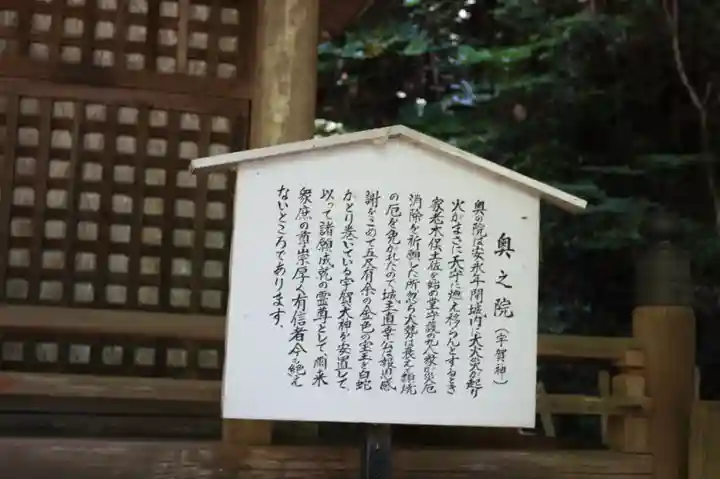 奥之院（宇賀神）
奥の院は安永年間城内に大火災が起り
火がまさに天守に燃え移らんとするとき
家老木俣土佐を始め
消除を祈願した所忽ち火勢は衰え類焼
の厄を免れたので、城主直幸公は報恩感
謝をこめて五尺有余の金色の宝玉を白蛇
がとり巻いている宇賀大神を安置して、
以って諸願成就の霊尊として、爾来
衆庶の尊崇厚く有信者今も絶え
ないところであります。